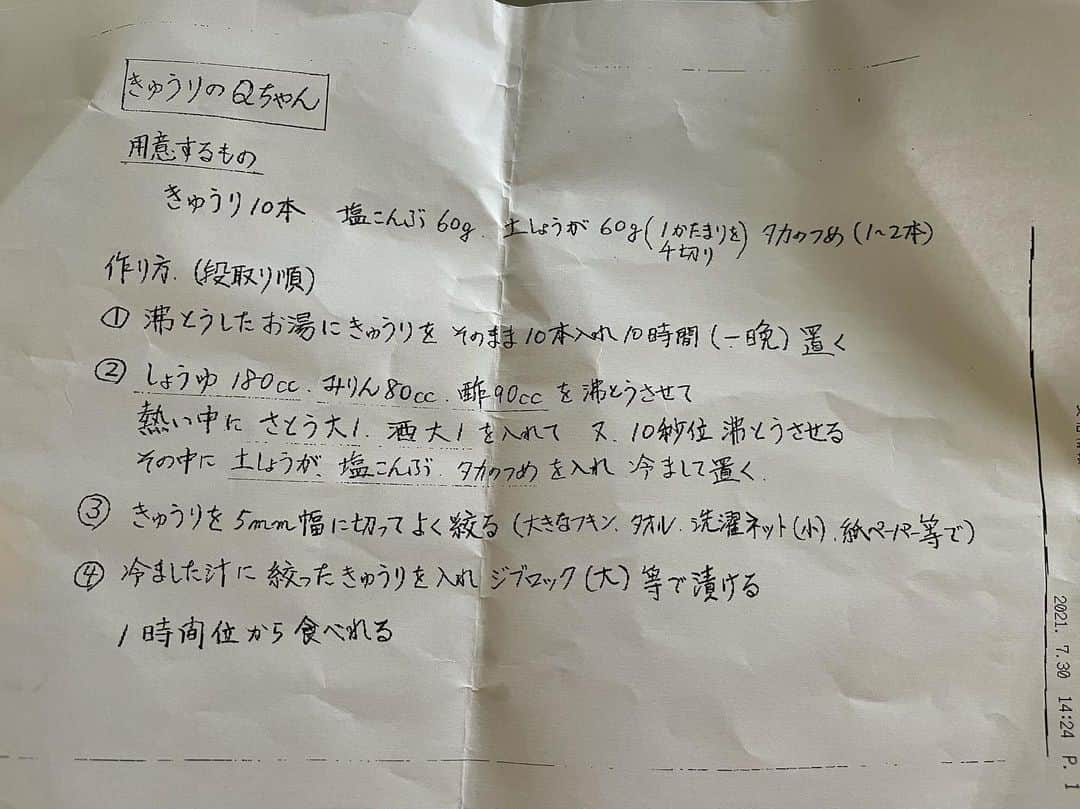 きゅうりのQちゃん
用意するもの
きゅうり10本 塩こんぶ60g. 土しょうが60g(1かたまりを4切り) タカのつめ(1~2本)
作り方.(段取り順)
① 沸とうしたお湯にきゅうりを そのまま10本入れ10時間(一晩)置く
② しょうゆ 180cc. みりん80cc. 酢90cc を沸とうさせて
熱い中に さとう大1. 酒大1を入れて 又.10秒位 沸とうさせる
その中に 土しょうが. 塩こんぶ. タカのつめを入れ 冷まして置く.
③ きゅうりを5mm幅に切ってよく絞る(大きなフキン. タオル. 洗濯ネット(小).紙ペーパー等で)
④ 冷ました汁に絞ったきゅうりを入れ ジブロック(大)等で漬ける
1時間位から食べれる
2021. 7.30 14:24 P. 1